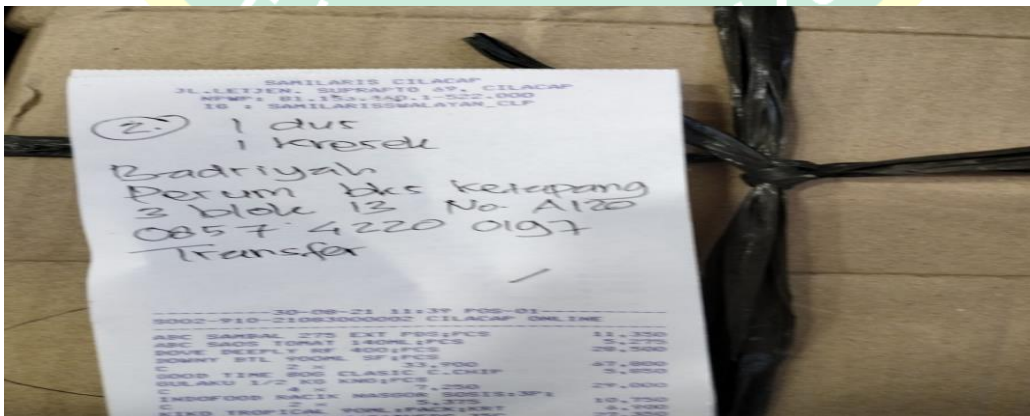 SAMILARIS CILACAP
JL.LETJEN. SUPRAPTO 69, CILACAP
NPWP: 81.153.940.1-522.000
IG : SAMILARISSWALAYAN_CLP
2. 1 dus
1 kresek
Badriyah
Perum bks Ketapang
3 blok 13 No. A120
0857 4220 0197
Transfer
30-08-21 11:39 POS-01
9002-910-21083000002 CILACAP ONLINE
ABC SAMBAL 275 EXT PDS:PCS 11.350
ABC SAOS TOMAT 140ML:PCS 5.275
DOVE DEEPLY RF 400:PCS 29.500
DOWNY BTL 900ML SF:PCS
C 2 x 33.900 67.800
GOOD TIME 80G CLASIC C.CHIP 5.850
GULAKU 1/2 KG KNG:PCS
C 4 x 7.250 29.000
INDOFOOD RACIK NASGOR SOSIS:3P:
C 2 x 5.375 10.750
KIKO TROPICAL 90ML:PACK:KRT 6.900